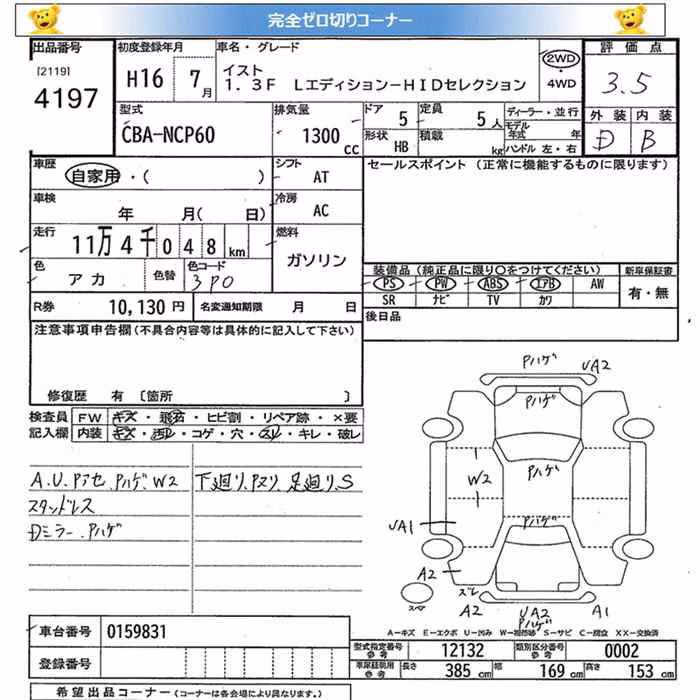 完全ゼロ切りコーナー
出品番号 [2119] 4197
初度登録年月 H16 7月
車名・グレード イスト
1.3F Lエディション-HIDセレクション
2WD・4WD
評価点 3.5
外装 D 内装 B
型式 CBA-NCP60
排気量 1300cc
ドア 5 定員 5人
形状 HB 積載 kg
ディーラー・並行
モデル年式 年
ハンドル 左・右
車歴 自家用・( )
シフト AT
セールスポイント(正常に機能するものに限ります)
車検 年 月( 日)
冷房 AC
走行 11万4千048km
燃料 ガソリン
色 アカ 色替 色コード 3P0
装備品(純正品に限り○をつけてください) 新車保証書
PS PW ABS エアB AW 有・無
SR ナビ TV カワ
R券 10,130円 名変通知期限 月 日
後日品
注意事項申告欄(不具合内容等は具体的に記入して下さい)
修復歴 有 [箇所 ]
検査員 FW キズ・飛石・ヒビ割・リペア跡・×要
記入欄 内装 キズ・汚レ・コゲ・穴・スレ・キレ・破レ
A.U.Pアセ.Pハゲ.W2 下廻り.Pヌリ.足廻り.S
スタンドレス
Dミラー.Pハゲ
Pハゲ UA2
Pハゲ
W2 Pハゲ
UA1 Pハゲ
A2
スレ
スペア A2 UA2 A1
Pハゲ
A-キズ E-エクボ U-凹み W-補修跡 S-サビ C-腐食 XX-交換済
車台番号 0159831
登録番号
型式指定番号 参考 12132 類別区分番号 参考 0002
車庫証明用 参考 長さ 385cm 幅 169cm 高さ 153cm
希望出品コーナー(コーナーは各会場により異なります。)